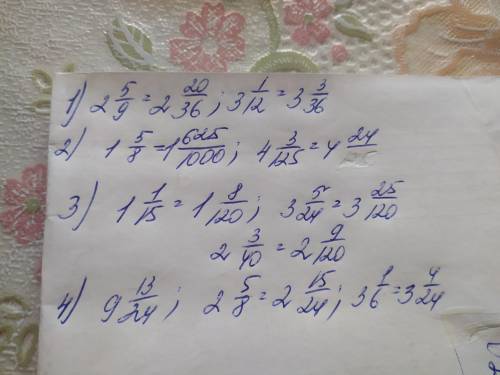 1) 2 5/9 = 2 20/36 ; 3 1/12 = 3 3/36
2) 1 5/8 = 1 625/1000 ; 4 3/125 = 4 24/
3) 1 1/15 = 1 8/120 ; 3 5/24 = 3 25/120
2 3/40 = 2 9/120
4) 9 13/24 ; 2 5/8 = 2 15/24 ; 3 1/6 = 3 4/24